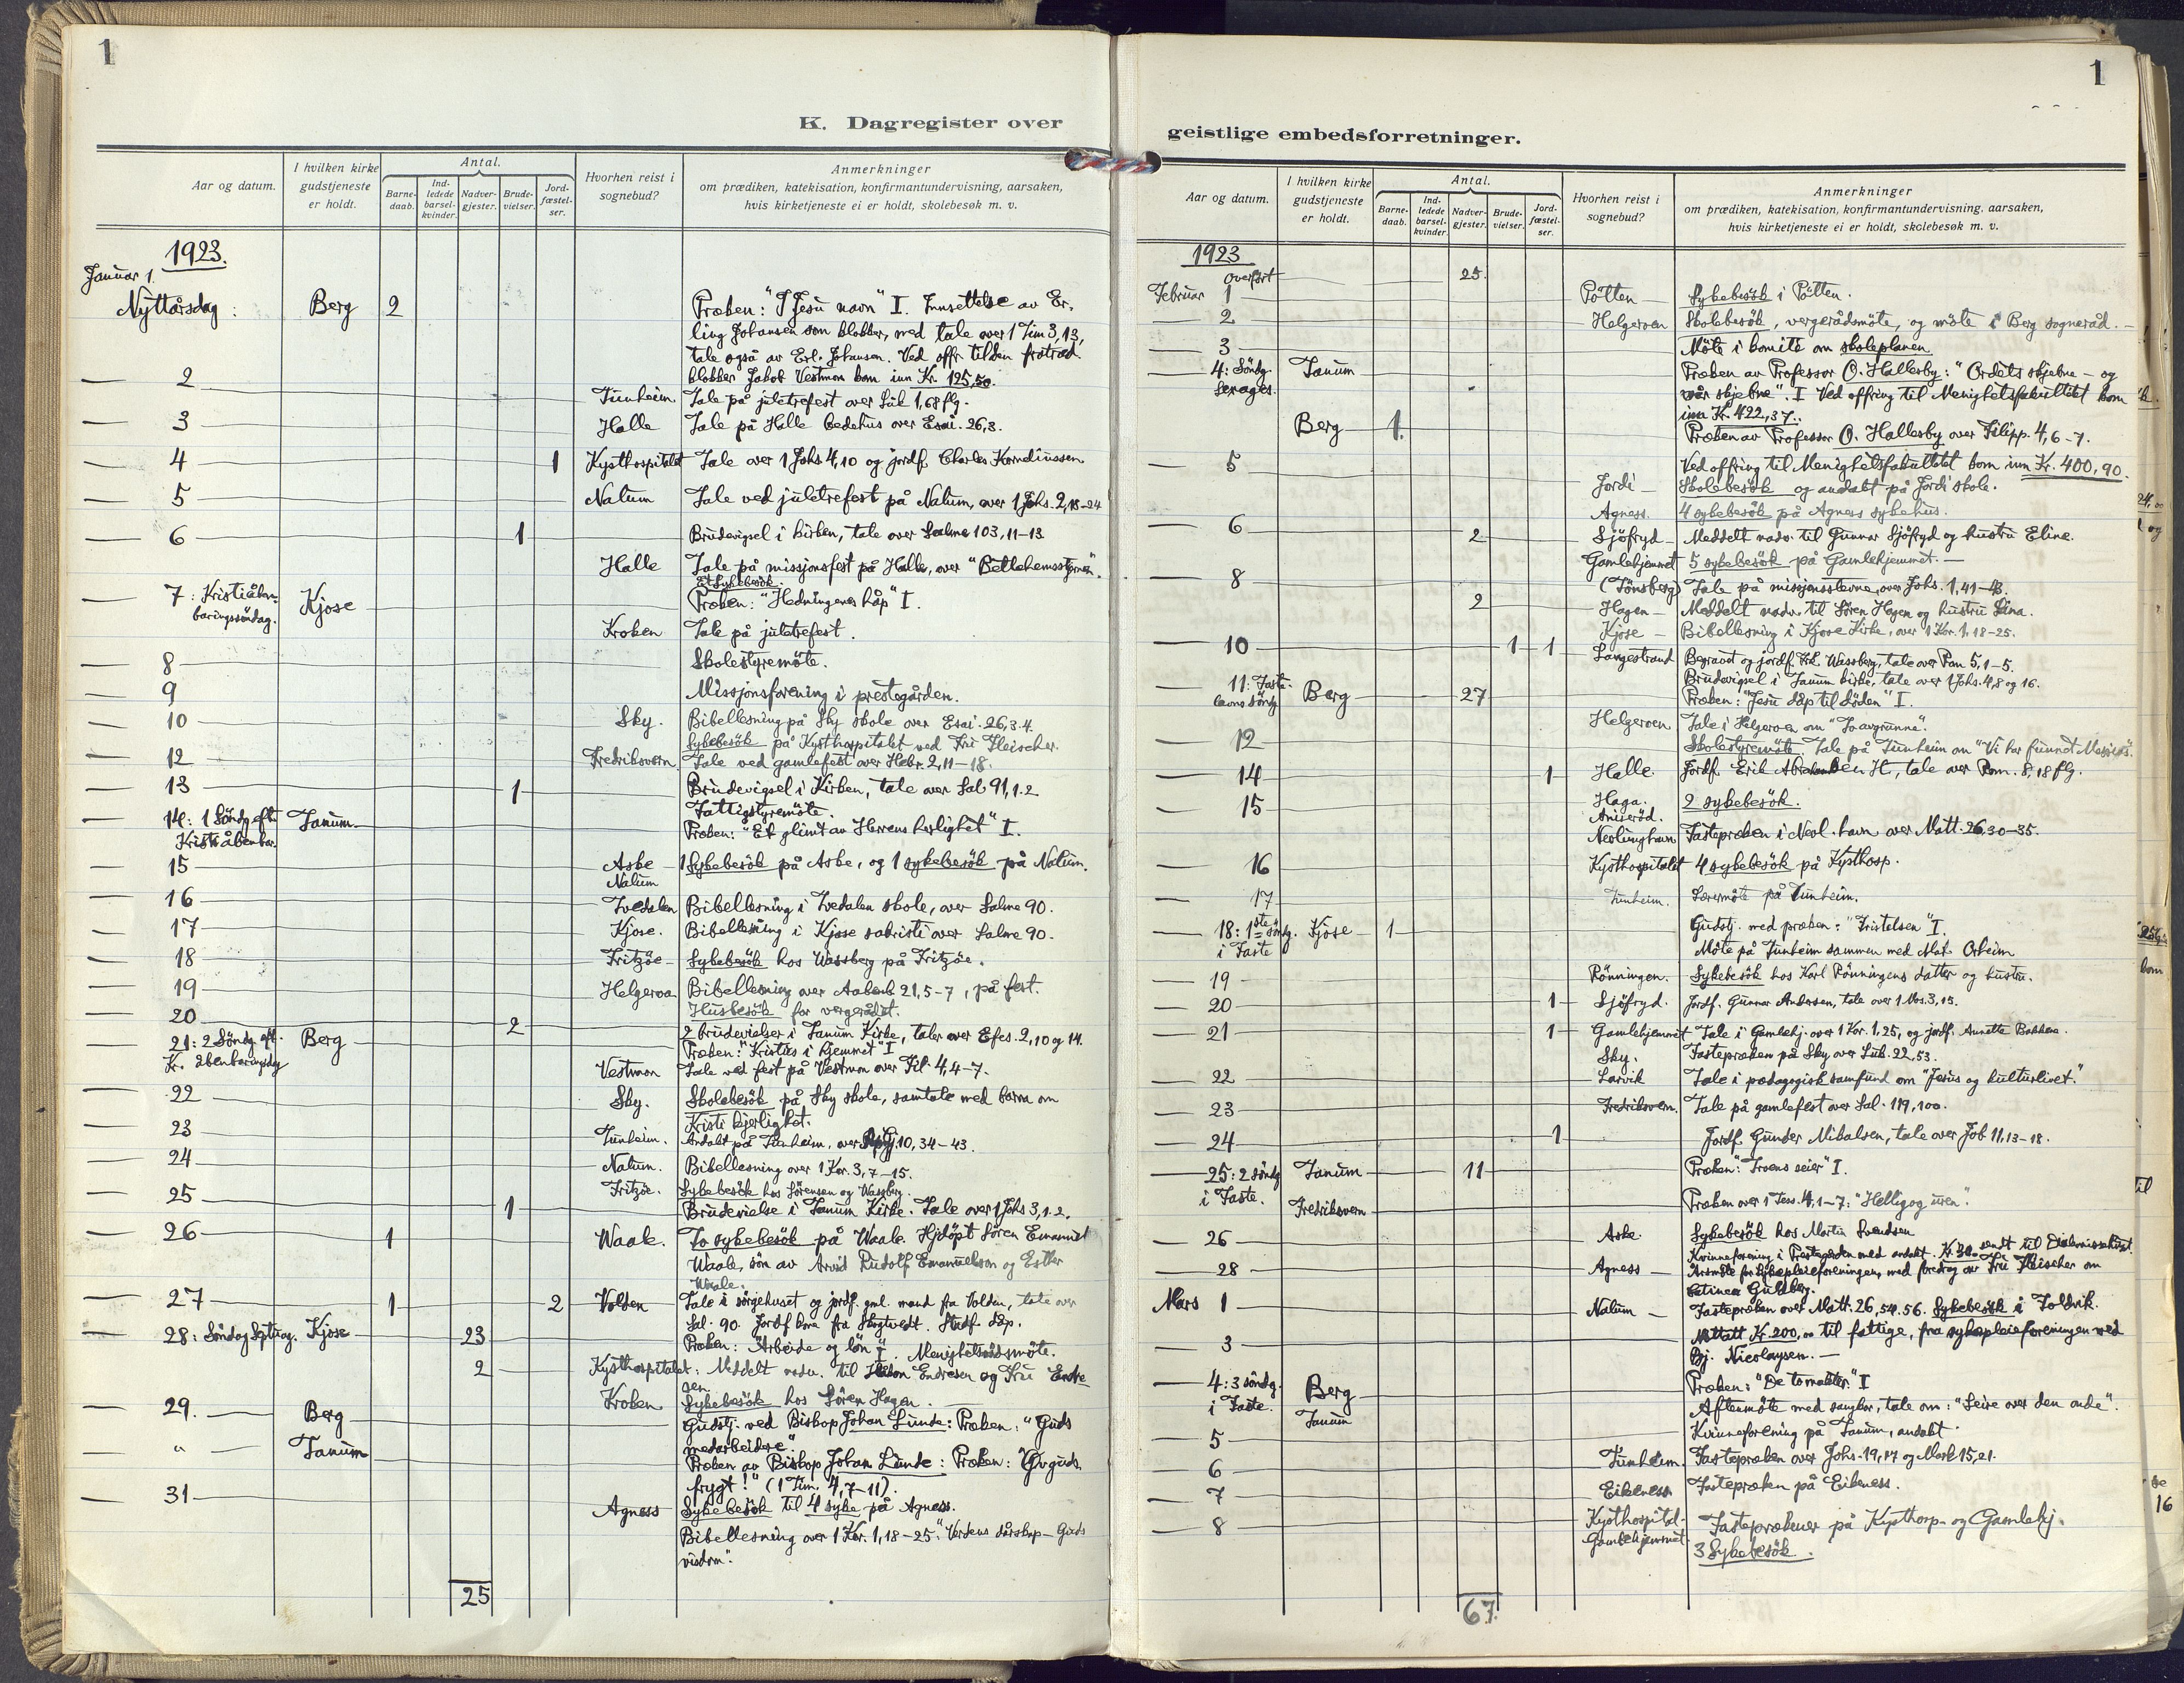 1
K. Dagregister over
Aar og datum.
I hvilken kirke gudstjeneste er holdt.
Antal.
Barne-daab.
Ind-ledede barsel-kvinder.
Nadver-gjester.
Brude-vielser.
Jord-fæstel-ser.
Hvorhen reist i sognebud?
Anmerkninger
om prædiken, katekisation, konfirmantundervisning, aarsaken,
hvis kirketjeneste ei er holdt, skolebesøk m. v.
1923.
Januar 1.
Nyttårsdag: Berg 2 Præken: "I Jesu navn" I. Innsettelse av Er-
ling Johansen som klokker, med tale over 1 Tim 3,13,
tale også av Erl. Johansen. Ved offr. til den fratråd.
klokker Jakob Vestmon kom inn Kr. 125,50.
2 Tunheim. Tale på juletrefest over Luk 1,68 flg.
3 Halle Tale på Halle bedehus over Esai. 26,3.
4 1 Kysthospitalet Tale over 1 Johs 4,10 og jordf. Charles Korneliussen
5 Nalum Tale ved juletrefest på Nalum, over 1 Johs. 2,18-24
6 1 Brudevigsel i kirken, tale over Salme 103, 11-13
Halle Tale på missjonsfest på Halle, over "Betlehemsstjernen".
Sykebesök.
7: Kristi åben-
baringssöndag. Kjose Præken: "Hedningenes håp" I.
Kroken Tale på juletrefest.
8 Skolestyremöte.
9 Missjonsforening i prestegården.
10 Sky. Bibellesning på Sky skole over Esai. 26,3.4.
Sykebesök på Kysthospitalet ved Fru Fleischer.
12 Fredriksvern. Tale ved gamlefest over Hebr. 2,11-18.
13 1 Brudevigsel i Kirken, tale over Sal 91,1.2
Fattigstyremöte.
14: 1 Söndg eft.
Kristi åbenbar. Tanum Præken: "Et glimt av Herrens herlighet" I.
15 Aske 1 Sykebesök på Aske, og 1 sykebesök på Nalum.
Nalum
16 Tvedalen Bibellesning i Tvedalen skole, over Salme 90.
17 Kjose. Bibellesning i Kjose sakristi over Salme 90.
18 Fritzöe Sykebesök hos Wassberg på Fritzöe.
19 Helgeroa Bibellesning over Aabenb 21,5-7, på fest.
20 Husbesök for vergerådet.
2 2 brudevielser i Tanum Kirke, taler over Efes. 2,10 og 14.
21: 2 Söndg eft.
Kr. åbenbaringsdag Berg Præken: "Kristus i hjemmet" I
Vestmon Tale ved fest på Vestmon over Fil. 4,4-7.
22 Sky. Skolebesök på Sky skole, samtale med barna om
Kristi kjerlighet.
23 Tunheim. Andakt på Tunheim, over Apgj 10, 34-43.
24 Nalum. Bibellesning over 1 Kor. 3, 7-15.
Fritzöe. Sykebesök hos Sörensen og Wassberg.
25 1 Brudevielse i Tanum Kirke. Tale over 1 Johs 3,1.2.
26 1 Waale. To sykebesök på Waale. Hjdöpt Sören Emanuel
Waale, sön av Arvid Rudolf Emanuelsen og Esther
Waale.
27 1 2 Volden Tale i sörgehuset og jordf. gml. mand fra Volden, tale over
Sal. 90. Jordf. kone fra Skogtvedt. Stadf. dåp.
28: Söndag Septuag. Kjose 23 Præken: "Arbeide og lön" I. Menighetsrådsmöte.
2 Kysthospitalet: Meddelt nadv. til Endresen og Fru Endre-
sen.
Kroken Sykebesök hos Sören Hagen.
29. Berg Gudstj. ved Biskop Johan Lunde: Præken: "Guds
medarbeidere".
" Tanum Præken av Biskop Johan Lunde: Præken: "Öv guds-
frygt!" (1 Tim. 4,7-11).
31 Agness Sykebesök til 4 syke på Agness.
Bibellesning over 1 Kor. 1,18-25: "Verdens dårskap - Guds
visdom".
25
1
geistlige embedsforretninger.
Aar og datum.
I hvilken kirke gudstjeneste er holdt.
Antal.
Barne-daab.
Ind-ledede barsel-kvinder.
Nadver-gjester.
Brude-vielser.
Jord-fæstel-ser.
Hvorhen reist i sognebud?
Anmerkninger
om prædiken, katekisation, konfirmantundervisning, aarsaken,
hvis kirketjeneste ei er holdt, skolebesøk m. v.
1923
Overfört 25.
Februar 1 Pötten Sykebesök i Pötten.
2 Helgeroen Skolebesök, vergerådsmöte, og möte i Berg sogneråd.
3 Möte i komité om skoleplanen
4: Söndg.
Sexages. Tanum Præken av Professor O. Hallesby: "Ordets skjebne - og
vår skjebne". I Ved offring til Menighetsfakultetet kom
inn Kr. 422,37.
Berg 1 Præken av Professor O. Hallesby over Filipp. 4,6-7.
Ved offring til Menighetsfakultetet kom inn Kr. 400,90.
5 Jordi Skolebesök og andakt på Jordi skole.
Agness. 4 sykebesök på Agness sykehus.
6 2 Sjöfryd Meddelt nadv. til Gunnar Sjöfryd og hustru Eline.
Gamlehjemmet 5 sykebesök på Gamlehjemmet.
8 (Tönsberg) Tale på missjonsstevne, over Johs. 1,41-43.
2 Hagen Meddelt nadv. til Sören Hagen og hustru Lina.
Kjose Bibellesning i Kjose Kirke, over 1 Kor. 1,18-25.
10 1 1 Langestrand Begravet og jordf. Wassberg, tale over Rom 5,1-5.
Brudevigsel i Tanum kirke, tale over 1 Johs. 4,8 og 16.
11: Faste-
lavns söndg Berg 27 Præken: "Jesu dåp til döden" I.
Helgeroen Tale i Helgeroen om "Lavgrunne".
12 Skolestyremöte. Tale på Tunheim om "Vi har funnet Messias".
14 1 Halle. Jordf. Erik tale over Rom. 8,18 flg.
15 Haga. 2 sykebesök.
Aniseröd.
Nevlunghavn Fastepræken i Nevl. havn over Matt. 26,30-35.
16 Kysthospitalet 4 sykebesök på Kysthosp.
17 Tunheim. Læremöte på Tunheim.
18: 1ste söndg.
i Faste Kjose 1 Gudstj. med præken: "Fristelsen" I.
Möte på Tunheim sammen med Orheim
19 Rönningen. Sykebesök hos Karl Rönningens datter og hustru.
20 1 Sjöfryd. Jordf. Gunnar Andersen, tale over 1 Mos. 3,15.
21 1 Gamlehjemmet Tale i Gamlehj. over 1 Kor. 1,25, og jordf. Annette Bakkene.
Sky. Fastepræken på Sky over Luk. 22,53.
22 Larvik Tale i pædagogisk samfund om "Jesus og kulturlivet."
23 Fredriksvern. Tale på gamlefest over Sal. 119,100.
24 1 Jordf. Gunder Mikalsen, tale over Job 11,13-18.
25: 2 söndg
i Faste. Tanum 11 Præken: "Troens seier" I.
Fredriksvern Præken over 1 Tess. 4,1-7: "Hellig og uren".
26 Aske. Sykebesök hos Martin Svendsen
Kvinneforening i Prestegården med andakt. Kr. 30 sendt til
28 Agness Årsmöte for Sykepleieforeningen, med foredrag av Fru Fleischer om
Catinca Guldberg.
Mars 1 Nalum Fastepræken over Matt. 26,54.56. Sykebesök i Foldvik.
3 Mottatt Kr 200,00 til fattige, fra sykepleieforeningen ved
Bj. Nicolaysen.
4: 3 söndg.
i Faste. Berg Præken: "De to makter." I
Tanum Aftenmöte med sangkor, tale om: "Seire over den onde".
5 Kvinneforening på Tanum, andakt.
6 Tunheim. Fastepræken over Johs. 19,17 og Mark 15,21.
7 Eikeness Fastepræken på Eikeness.
8 Kysthospital-
Gamlehjemmet Fasteprækener på Kysthosp- og Gamlehj.
3 Sykebesök.
67.